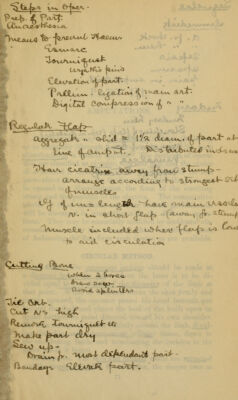 Steps in Oper.
Prep. of Part.
Anaesthesia
Means to prevent Haem
" Esmarc
Tourniquet
Wyeth's pins
Elevation of part.
Prelim. ligation of main art.
Digital compression of " "
Regular Flap
Aggregate = 1½ diam. of part at
line of amput. Distributed
Have cicatrix away from stump -
arrange according to strongest
of muscle
If of une = length have main vessels
n. in short flap (away fr. stump
Muscle included when flap is long
to aid circulation
Cutting Bone
when 2 bones
Draw saw
Avoid splinters
Tie Art.
Cut Ns high
Remove Tourniquet etc
Make part dry
Sew up -
Drain fr. most dependant part.
Bandage Elevate part.